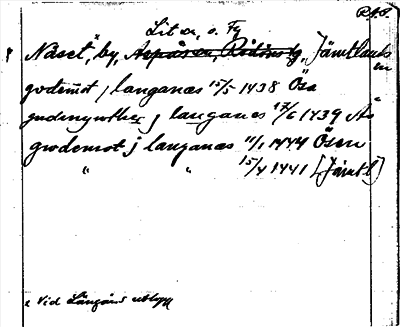 R.A.P.
Lit o. Fg
"Näset", by, Aspåsen, Rödöns tg, Jämtlands
län
gudemot j langanas 15/5 1438 Ösa
gudmynthe j langanas 17/6 1439 Ås
gudemot j langanas 11/1 1444 Ösen
" " 15/4 1441 [Jämtl]
Vid Långåns utlopp